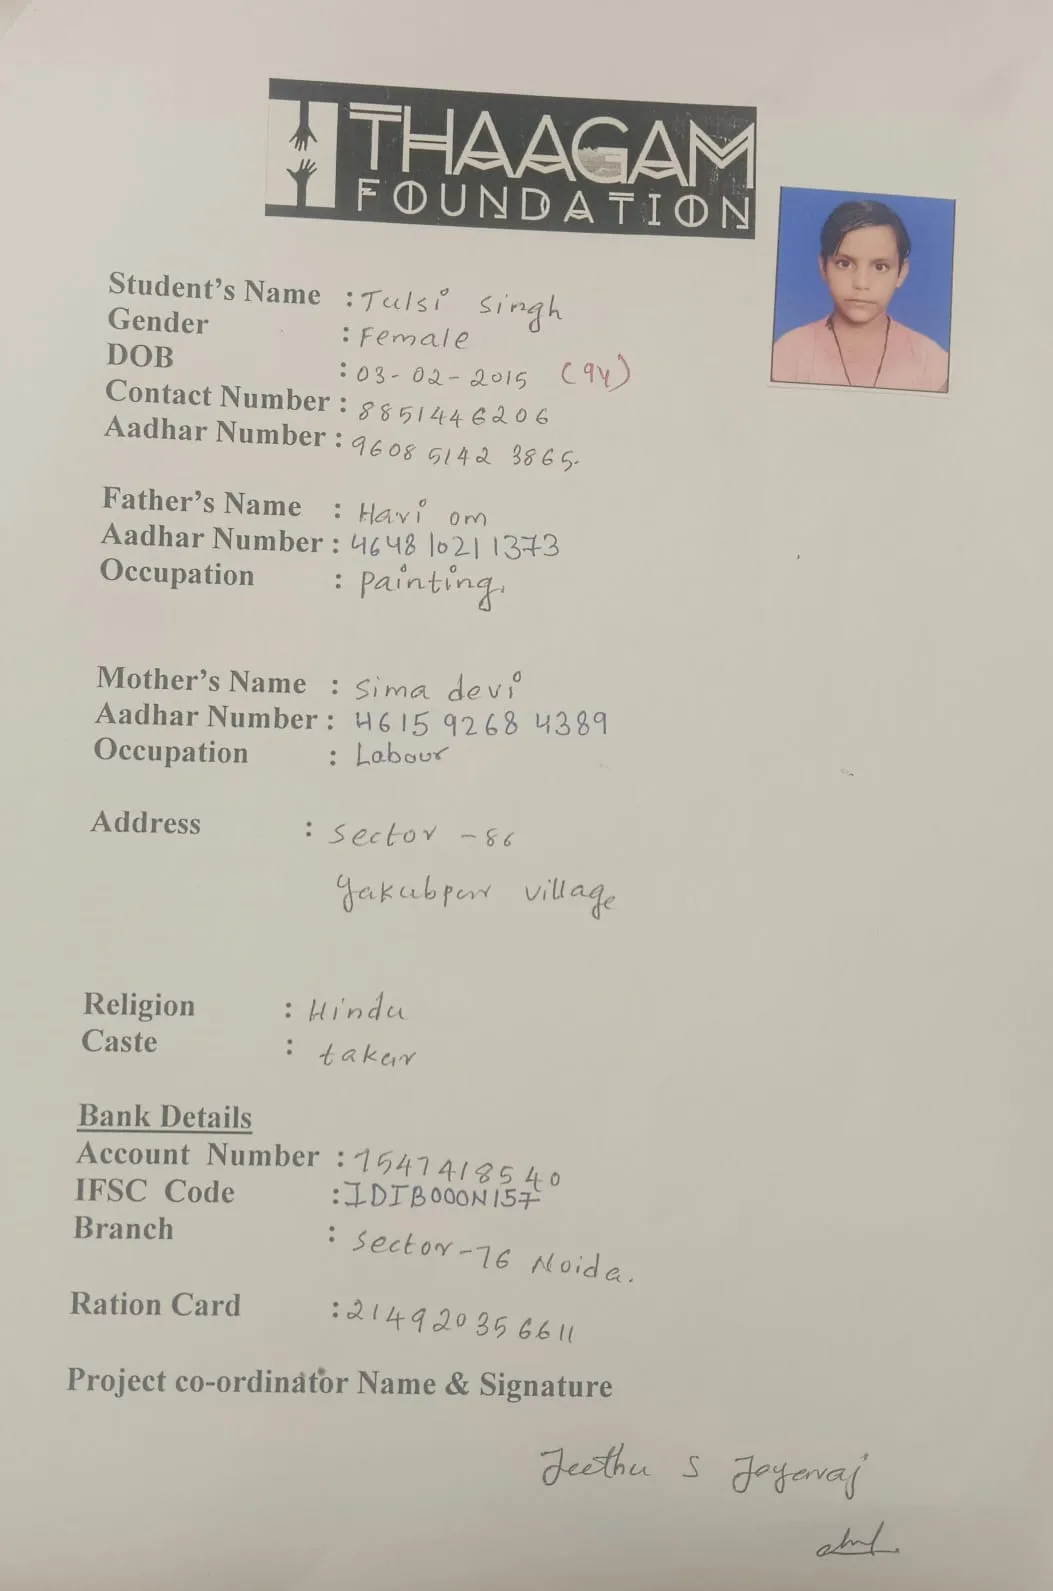 THAAGAM
FOUNDATION
Student's Name : Tulsi singh
Gender : Female
DOB : 03-02-2015 (9Y)
Contact Number : 8851446206
Aadhar Number : 9608 5142 3865.
Father's Name : Hari om
Aadhar Number : 4648 1021 1373
Occupation : painting.
Mother's Name : Sima devi
Aadhar Number : 4615 9268 4389
Occupation : Labour
Address : Sector -86
Yakubpur village
Religion : Hindu
Caste : takur
Bank Details
Account Number : 7547418540
IFSC Code : IDIB000N157
Branch : Sector-76 Noida.
Ration Card : 214920356611
Project co-ordinator Name & Signature
Jeethu S